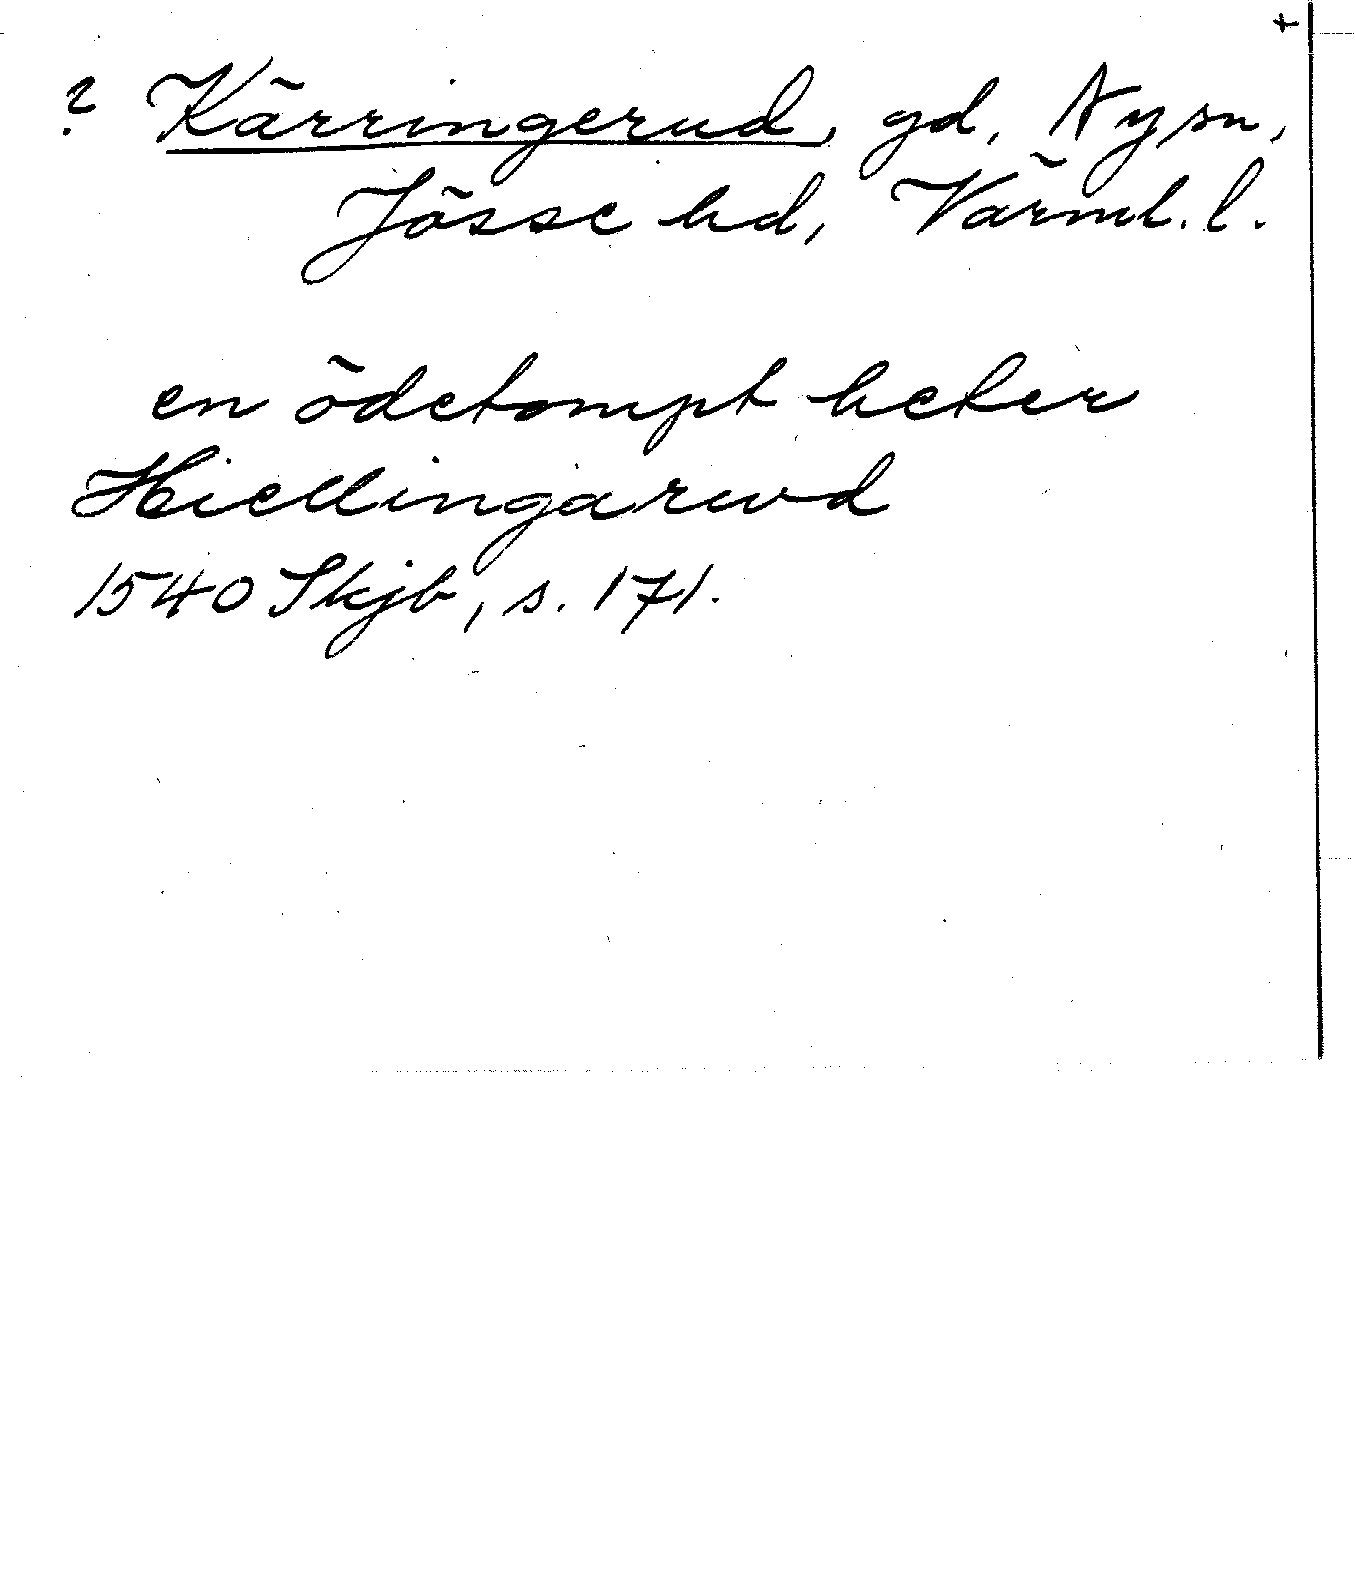 ? Kärringerud, gd, Ny sn,
Jösse hd, Värml. l.
en ödetompt heter
Hiellingarwd
1540 Skjb, s. 171.